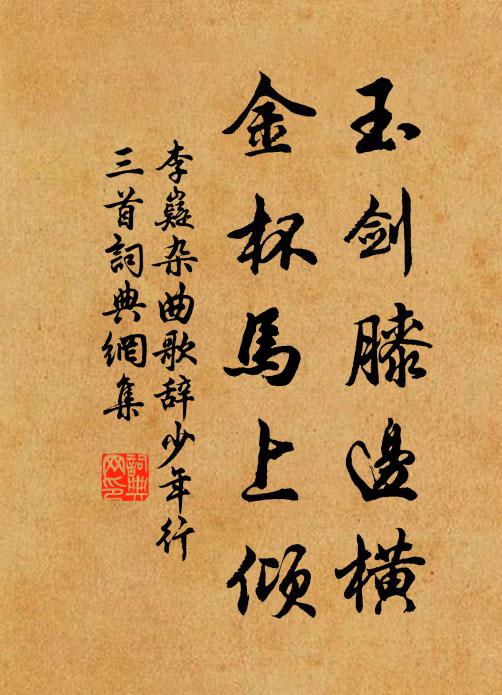 玉剑膝邊横
金杯馬上倾
李嶷杂曲歌辞少年行
三首詞典網集
詞典
网印